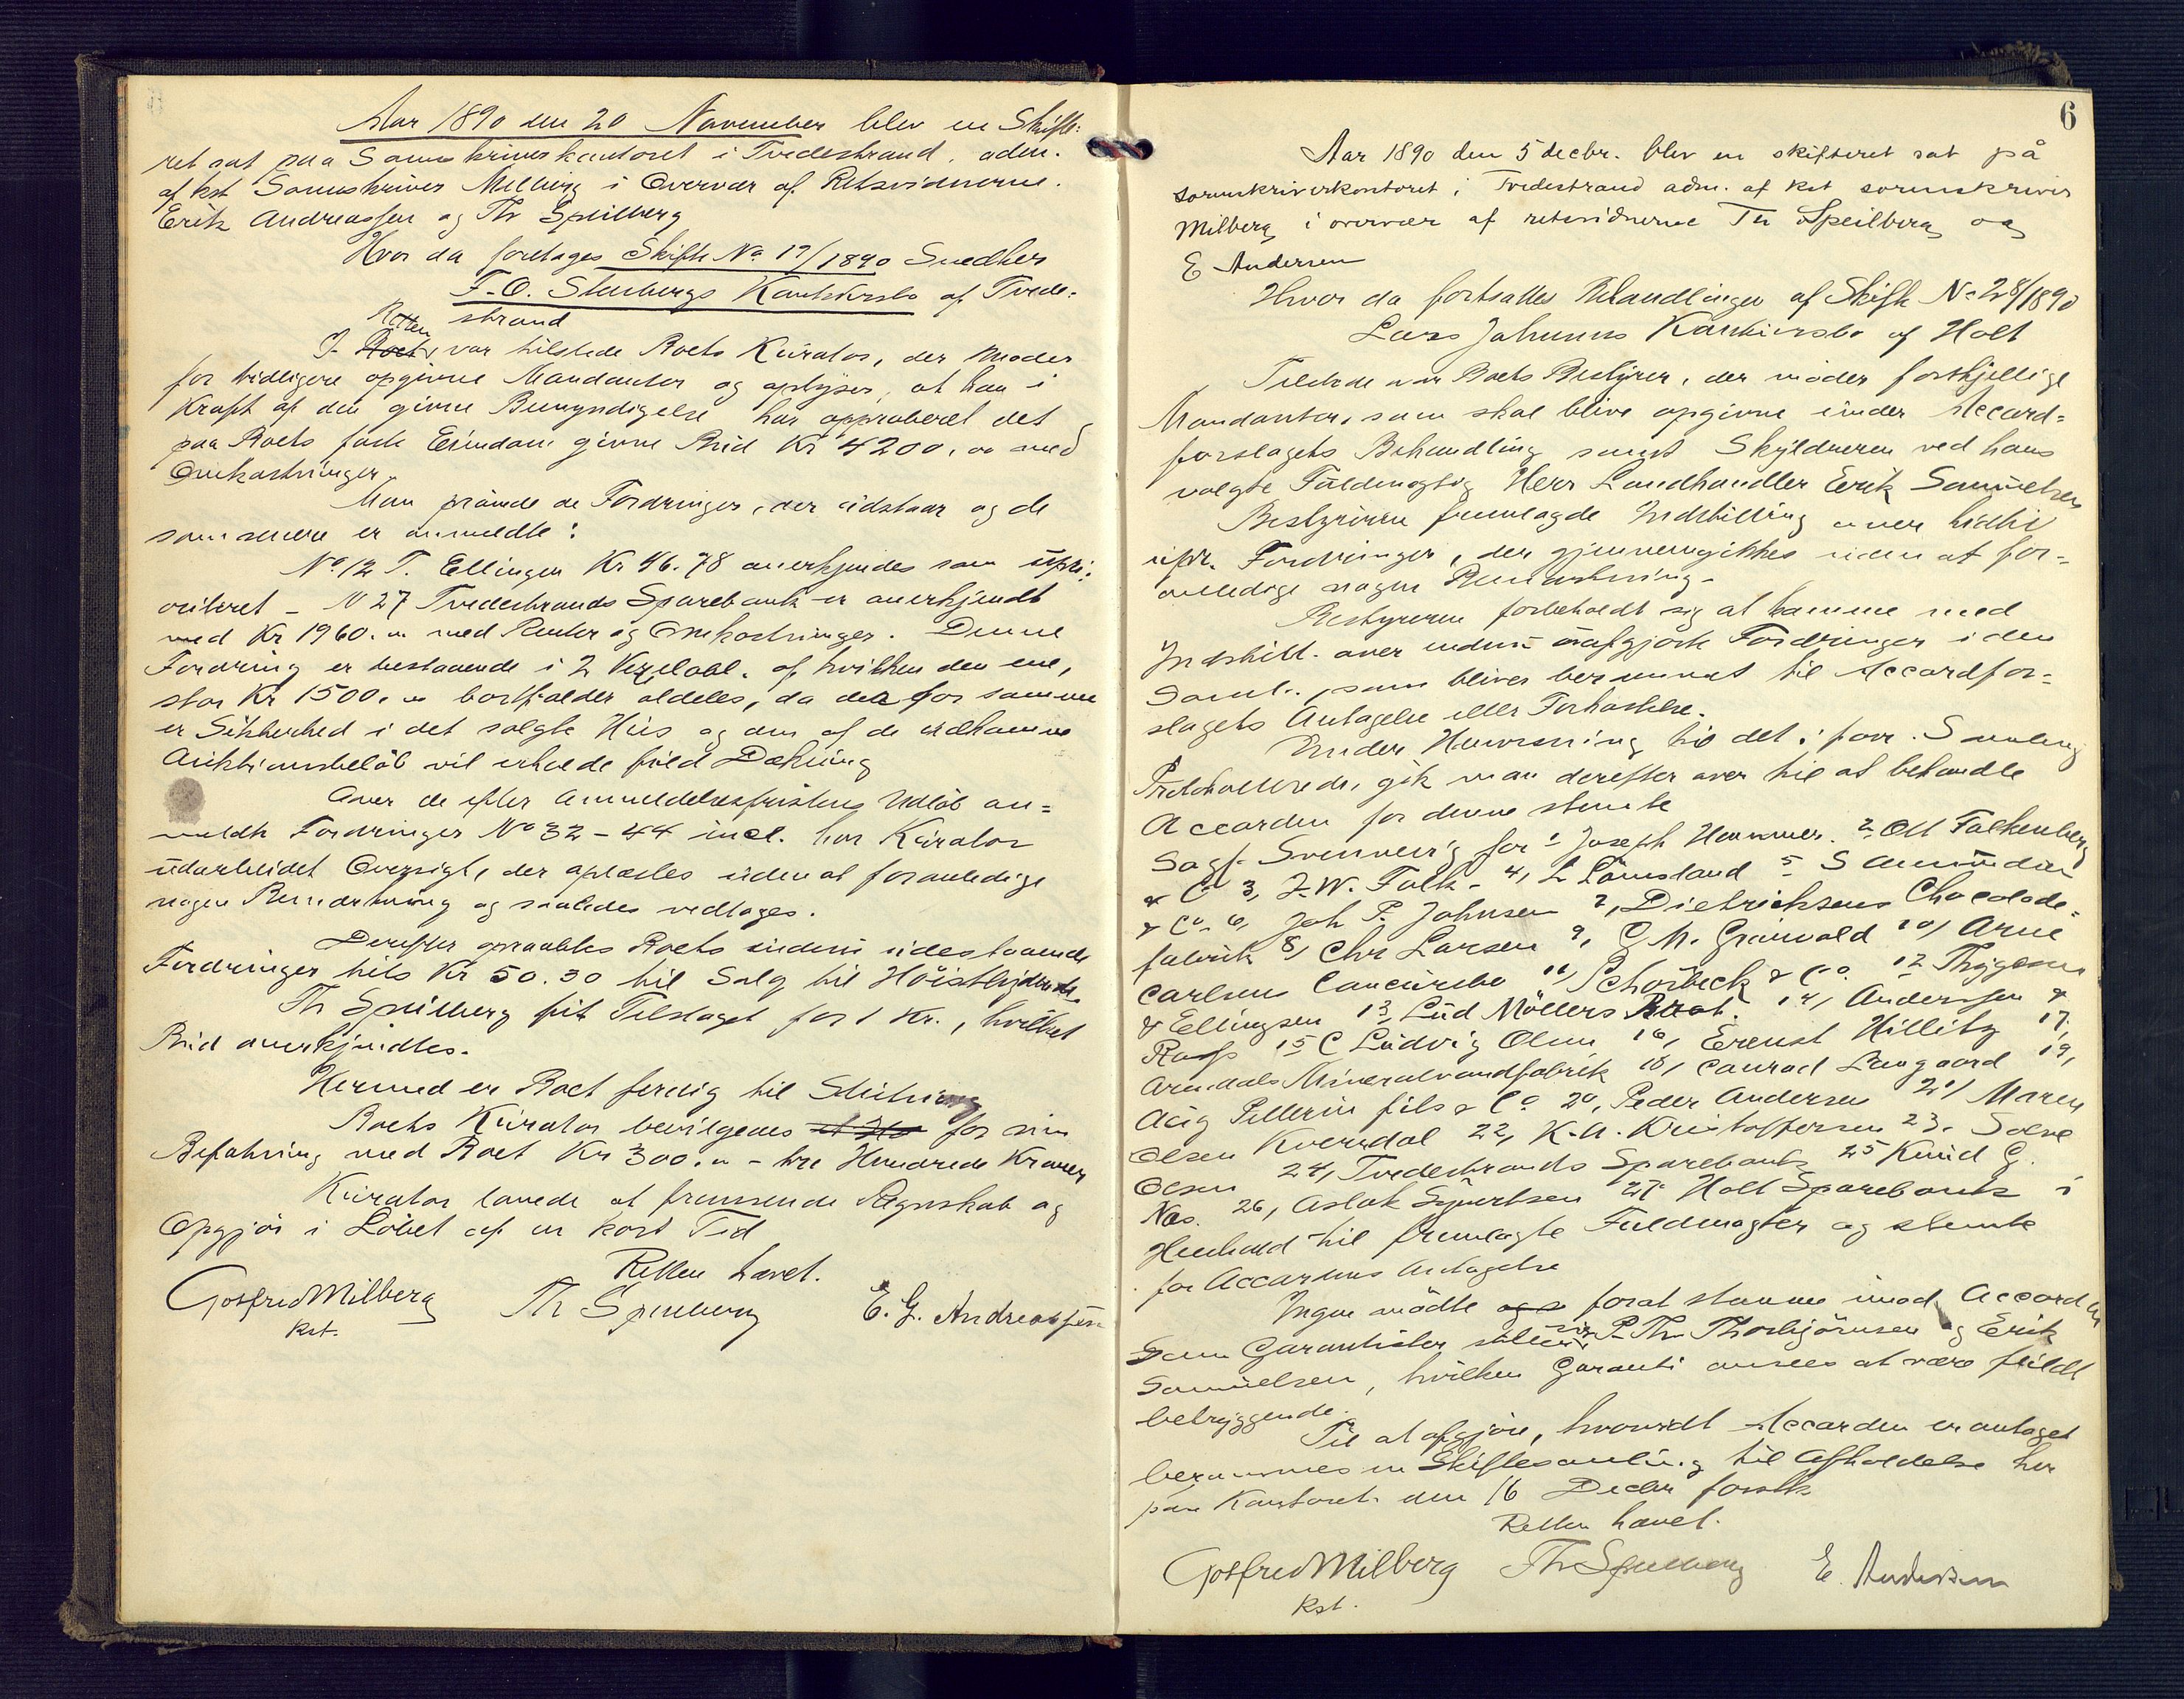 Aar 1890 den 20 November blev en Skifte-
ret sat paa Sorenskriverkontoret i Tvedestrand, adm.
af kst Sorenskriver Milberg i Overvær af Retsvidnerne.
Erik Andreassen og Th Speilberg
Hvor da foretages Skifte No 17/1890 Snedker
F. O. Stenbergs Konkursbo af Tvede-
strand
I Retten var tilstede Boets Kurator, der møder
for tidligere opgivne Mandanter og oplyser, at han i
Kraft af den givne Bemyndigelse har approberet det
paa Boets faste Eiendom givne Bud Kr 4200,00 med
Omkostninger.
Man prøvede de Fordringer, der udstaar og de
som senere er anmeldte:
No 12 T. Ellingsen Kr 46.78 anerkjendes som upri-
oriteret – N 27 Tvedestrands Sparebank er anerkjendt
med Kr 1960.00 med Renter og Omkostninger. Denne
Fordring er bestaaende i 2 Vexelobl. af hvilken den ene,
stor Kr 1500.00 bortfalder aldeles, da der for samme
er Sikkerhed i det solgte Hus og den af de indkomne
Auktionsbeløb vil erholde fuld Dækning
Over de efter Anmeldelsesfristens Udløb an-
meldte Fordringer No 32 – 44 incl. har Kurator
udarbeidet Oversigt, der oplæstes uden at foranledige
nogen Bemærkning og saaledes vedtages.
Derefter opraabtes Boets endnu udestaaende
Fordringer tils Kr 50.30 til Salg til Høistbydende.
Th Speilberg fik Tilslaget for 1 Kr., hvilket
Bud anerkjendtes.
Hermed er Boet ferdig til Slutning
Boets Kurator bevilgedes for sin
Befatning med Boet Kr 300.00 – tre Hundrede Kroner
Kurator lovede at fremsende Regnskab og
Opgjør i Løbet af en kort Tid
Retten hævet.
Gotfred Milberg Th Speilberg E. G. Andreassen
kst.
6
Aar 1890 den 5 decbr. blev en skifteret sat på
sorenskriverkontoret i Tvedestrand adm. af kst sorenskriver
Milberg i overvær af retsvidnerne Th Speilberg og
E Andersen
Hvor da fortsattes Behandlingen af Skifte No 28/1890
Lars Johnsens Konkursbo af Holt
Tilstede var Boets Bestyrer, der møder forskjellige
Mandanter, som skal blive opgivne under Accord-
forslagets Behandling samt Skyldneren ved hans
valgte Fuldmægtig Herr Landhandler Erik Samuelsen
Bestyreren fremlagde Indstilling over hidtil
upr. Fordringer, der gjennemgikkes uden at for-
anledige nogen Bemærkning.
Bestyreren forbeholdt sig at komme med
Indstill. over endnu uafgjorte Fordringer i den
Saml., som bliver berammet til Accordfor-
slagets Antagelse eller Forkastelse.
Under Henvisning til det i forr. Samling
Protokollerede, gik man derefter over til at behandle
Accorden for denne stemte
Sagf. Svennevig for 1 Joseph Hammer. 2 Ott Falkenberg
& Co 3, J.W. Falk. 4, L Lømsland 5 S Amundsen
& Co. 6, Joh P. Johnsen 7, Dietrichsens Chocolade-
fabrik 8, Chr Larsen 9, G M. Grønvold 10, Arne
Carlsens Concursbo 11, Schørbeck & Co. 12 Thygesen
& Ellingsen 13, Lud Møllers 14, Anderssen &
15 C Ludvig Olsen 16, Ernst Hillitz 17,
Arendals Mineralvandfabrik 18, Conrad Langaard 19,
Aug Pellerin fils & Co 20, Peder Andersen 21, Maren
Olsen Kverndal 22, K. A. Kristoffersen 23.
Olsen 24, Tvedestrands Sparebank 25 Knud G.
Næs. 26, Aslak Sjyvertsen 27. Holt Sparebank i
Henhold til fremlagte Fuldmagter og stemte
for Accordens Antagelse
Ingen mødte forat stemme imod Accorden
Som Garantister stiller sig P. Th. Thorbjørnsen og Erik
Samuelsen, hvilken Garanti ansees at være fuldt
betryggende.
Til at afgjøre, hvorvidt Accorden er antaget
berammes en Skiftesamling til Afholdelse her
paa Kontoret den 16 Decbr førstk
Retten hævet.
Gotfred Milberg Th Speilberg E. Andersen
kst.